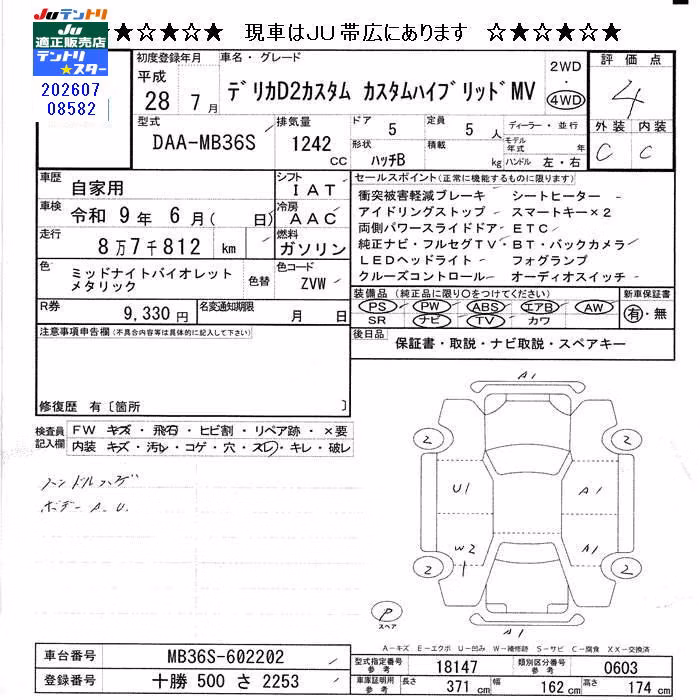 Juテントリ
Ju
適正販売店
テントリ
★スター
★☆★☆★☆ 現車はＪＵ帯広にあります ☆★☆★☆★
202607
08582
初度登録年月
平成
28 年 7 月
車名・グレード
デリカD2カスタム カスタムハイブリッドMV
2WD
・
4WD
評価点
4
外装 内装
C C
型式
DAA-MB36S
排気量
1242
CC
ドア
5
定員
5 人
形状
ハッチB
積載
kg
ディーラー・並行
モデル年式 年
ハンドル 左・右
車歴
自家用
シフト
IAT
車検
令和 9 年 6 月 ( 日)
冷房
AAC
走行
8 万 7 千 812 km
燃料
ガソリン
色
ミッドナイトバイオレット
メタリック
色替
色コード
ZVW
R券
9,330 円
名変通知期限
月 日
セールスポイント(正常に機能するものに限ります)
衝突被害軽減ブレーキ シートヒーター
アイドリングストップ スマートキー×2
両側パワースライドドア ETC
純正ナビ・フルセグTV BT・バックカメラ
LEDヘッドライト フォグランプ
クルーズコントロール オーディオスイッチ
装備品 (純正品に限り○をつけてください)
PS PW ABS エアB AW
SR ナビ TV カワ
新車保証書
有・無
後日品
保証書・取説・ナビ取説・スペアキー
注意事項申告欄(不具合内容等は具体的に記入して下さい)
修復歴 有〔箇所 〕
検査員
記入欄
FW キズ・飛石・ヒビ割・リペア跡・×要
内装 キズ・汚レ・コゲ・穴・スレ・キレ・破レ
ハンドルハゲ
ボデー A. U.
A1
2 2
U1 A1
W2 A1
2 2
P
スペア
A1
A-キズ E-エクボ U-凹み W-補修跡 S-サビ C-腐食 XX-交換済
車台番号
MB36S-602202
登録番号
十勝 500 さ 2253
型式指定番号
参考
18147
類別区分番号
参考
0603
車庫証明用
参考
長さ 371 cm 幅 162 cm 高さ 174 cm